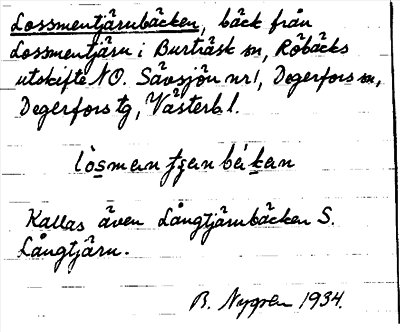 Lossmentjärnbäcken, bäck från
Lossmentjärn i Burträsk sn, Röbäcks
utskifte NO. Sävsjön nr 1, Degerfors sn,
Degerfors tg, Västerb. l.
lòsmantjenbékan
Kallas även Långtjärnbäcken S.
Långtjärn.
B. Nygren 1934.